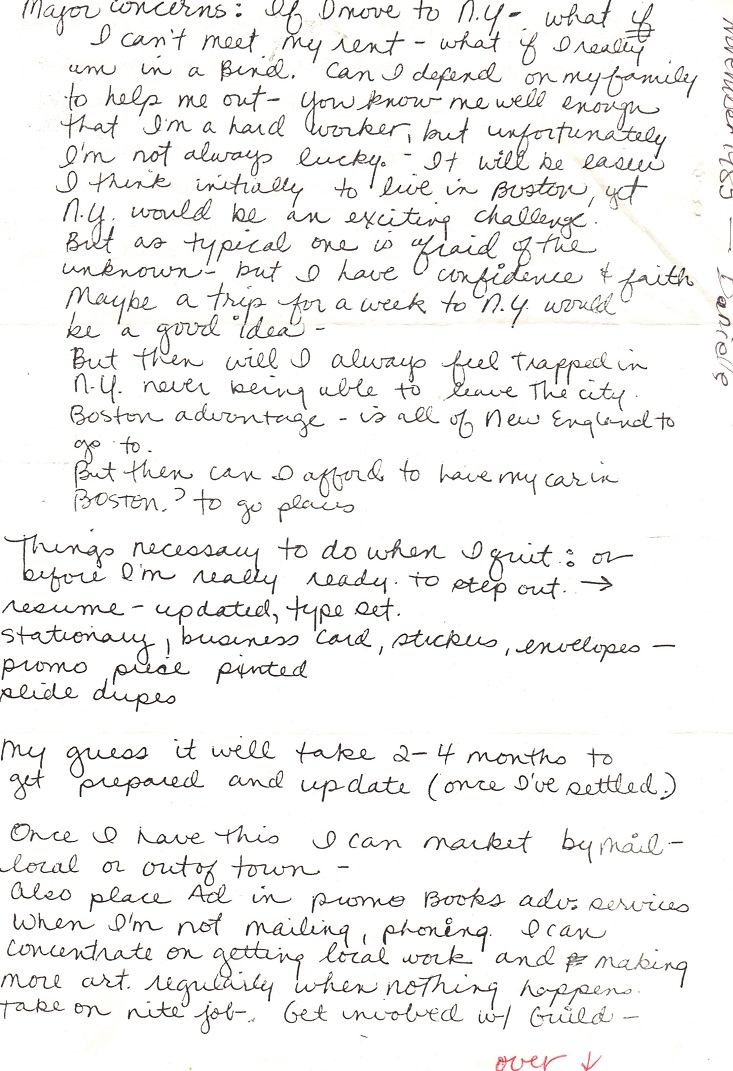 Major concerns: If I move to N.Y - what if
I can't meet my rent - what if I really
um in a Bind. Can I depend on my family
to help me out - you know me well enough
that I'm a hard worker, but unfortunately
I'm not always lucky. - It will be easier
I think initially to live in Boston, yet
N.Y. would be an exciting challenge.
But as typical one is afraid of the
unknown - but I have confidence & faith
Maybe a trip for a week to N.Y. would
be a good idea -
But then will I always feel trapped in
N.Y. never being able to leave The city.
Boston advantage - is all of New England to
go to.
But then can I afford to have my car in
BOSTON.? to go places
Things necessary to do when I quit: or
before I'm really ready. to step out. →
resume - updated, type set.
stationary, business card, stickers, envelopes —
promo piece printed
slide dupes
My guess it will take 2-4 months to
get prepared and update (once I've settled.)
Once I have this I can market by mail -
local or out of town -
Also place Ad in promo Books adv. services
When I'm not mailing, phoning. I can
concentrate on getting local work and making
more art. regularly when nothing happens.
take on nite job-. Get involved w/ Guild -
over ↓
November 1985 — Danielle